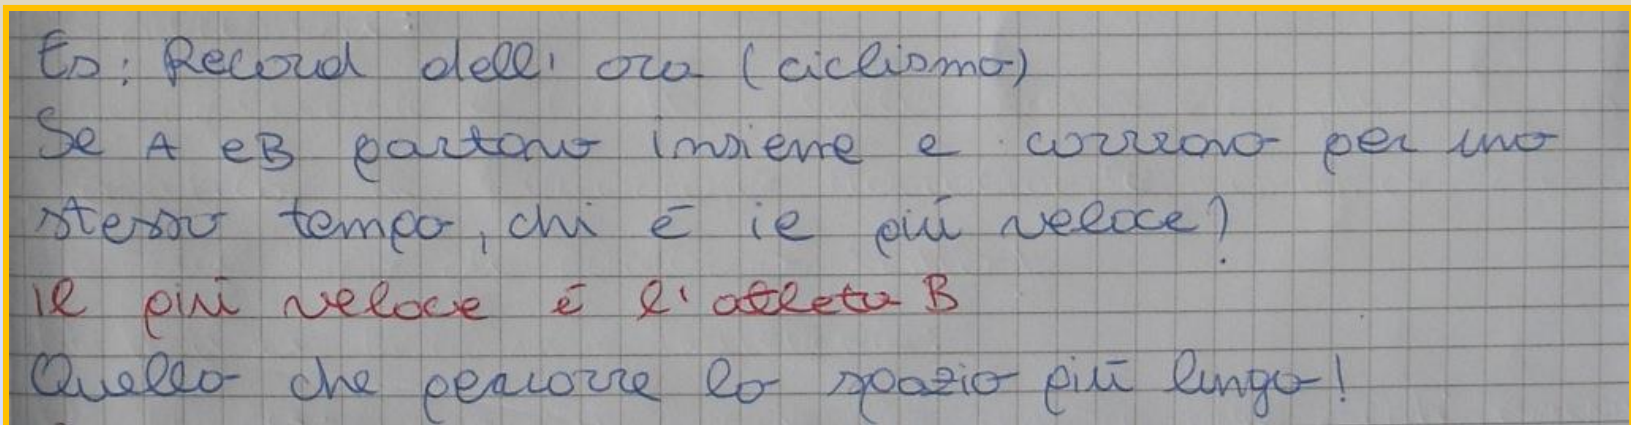 Es: Record dell' ora (ciclismo)
Se A e B partono insieme e corrono per uno
stesso tempo, chi è il più veloce?
il più veloce è l'atleta B
Quello che percorre lo spazio più lungo!